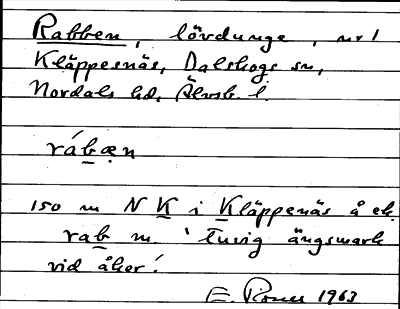 Rabben, lövdunge, nr 1
Kläppesnäs, Dalskogs sn,
Nordals hd, Älvsb. l.
rábæn
150 m N K i Kläppenäs å ek.
rab m. 'tuvig ängsmark
vid åker'.
E. 1963